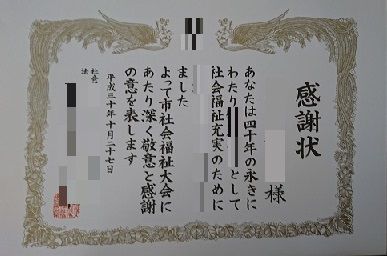 感謝状
様
あなたは四十年の永きに
わたり として
社会福祉充実のために
ました
よって市社会福祉大会に
あたり深く敬意と感謝
の意を表します
平成三十年十月二十七日
社会
法